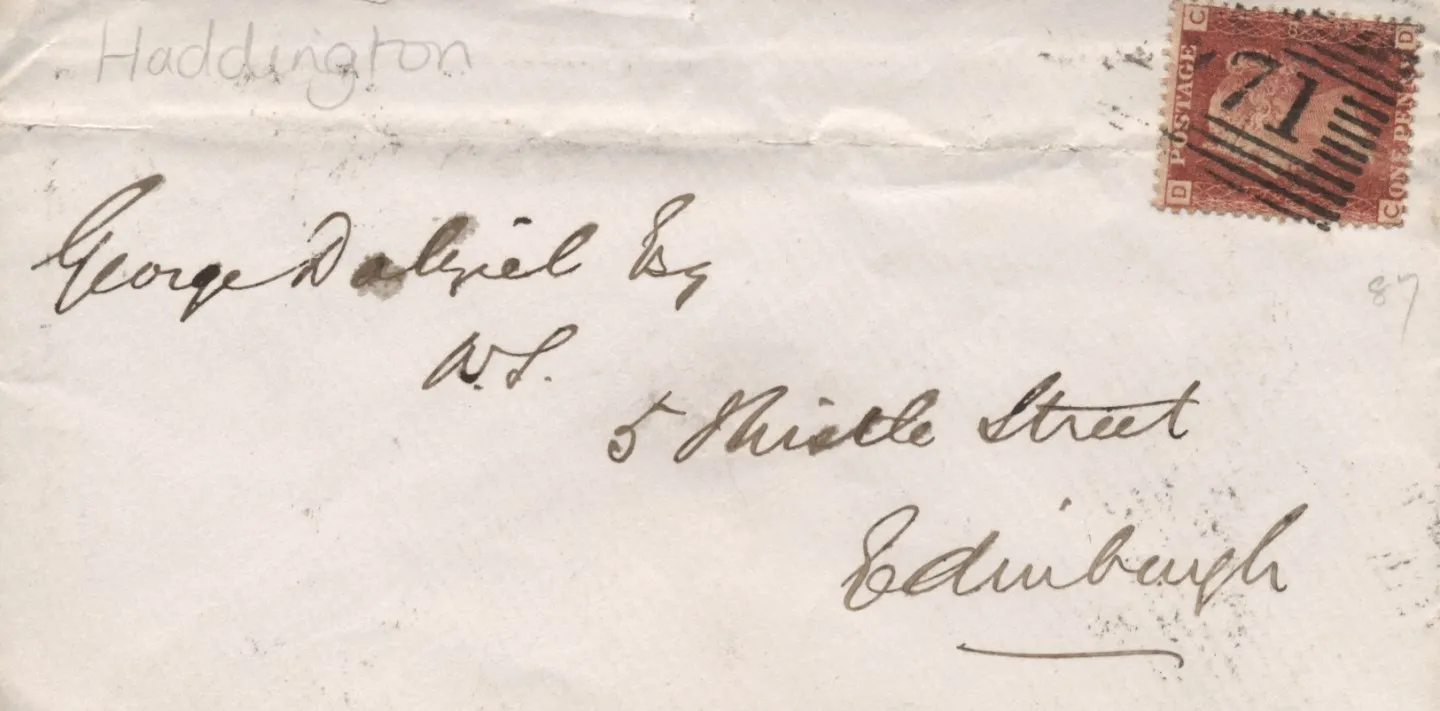 Haddington
D C
POSTAGE
ONE PENNY
D C
71
George Dalziel Esq
W.S.
87
5 Thistle Street
Edinburgh